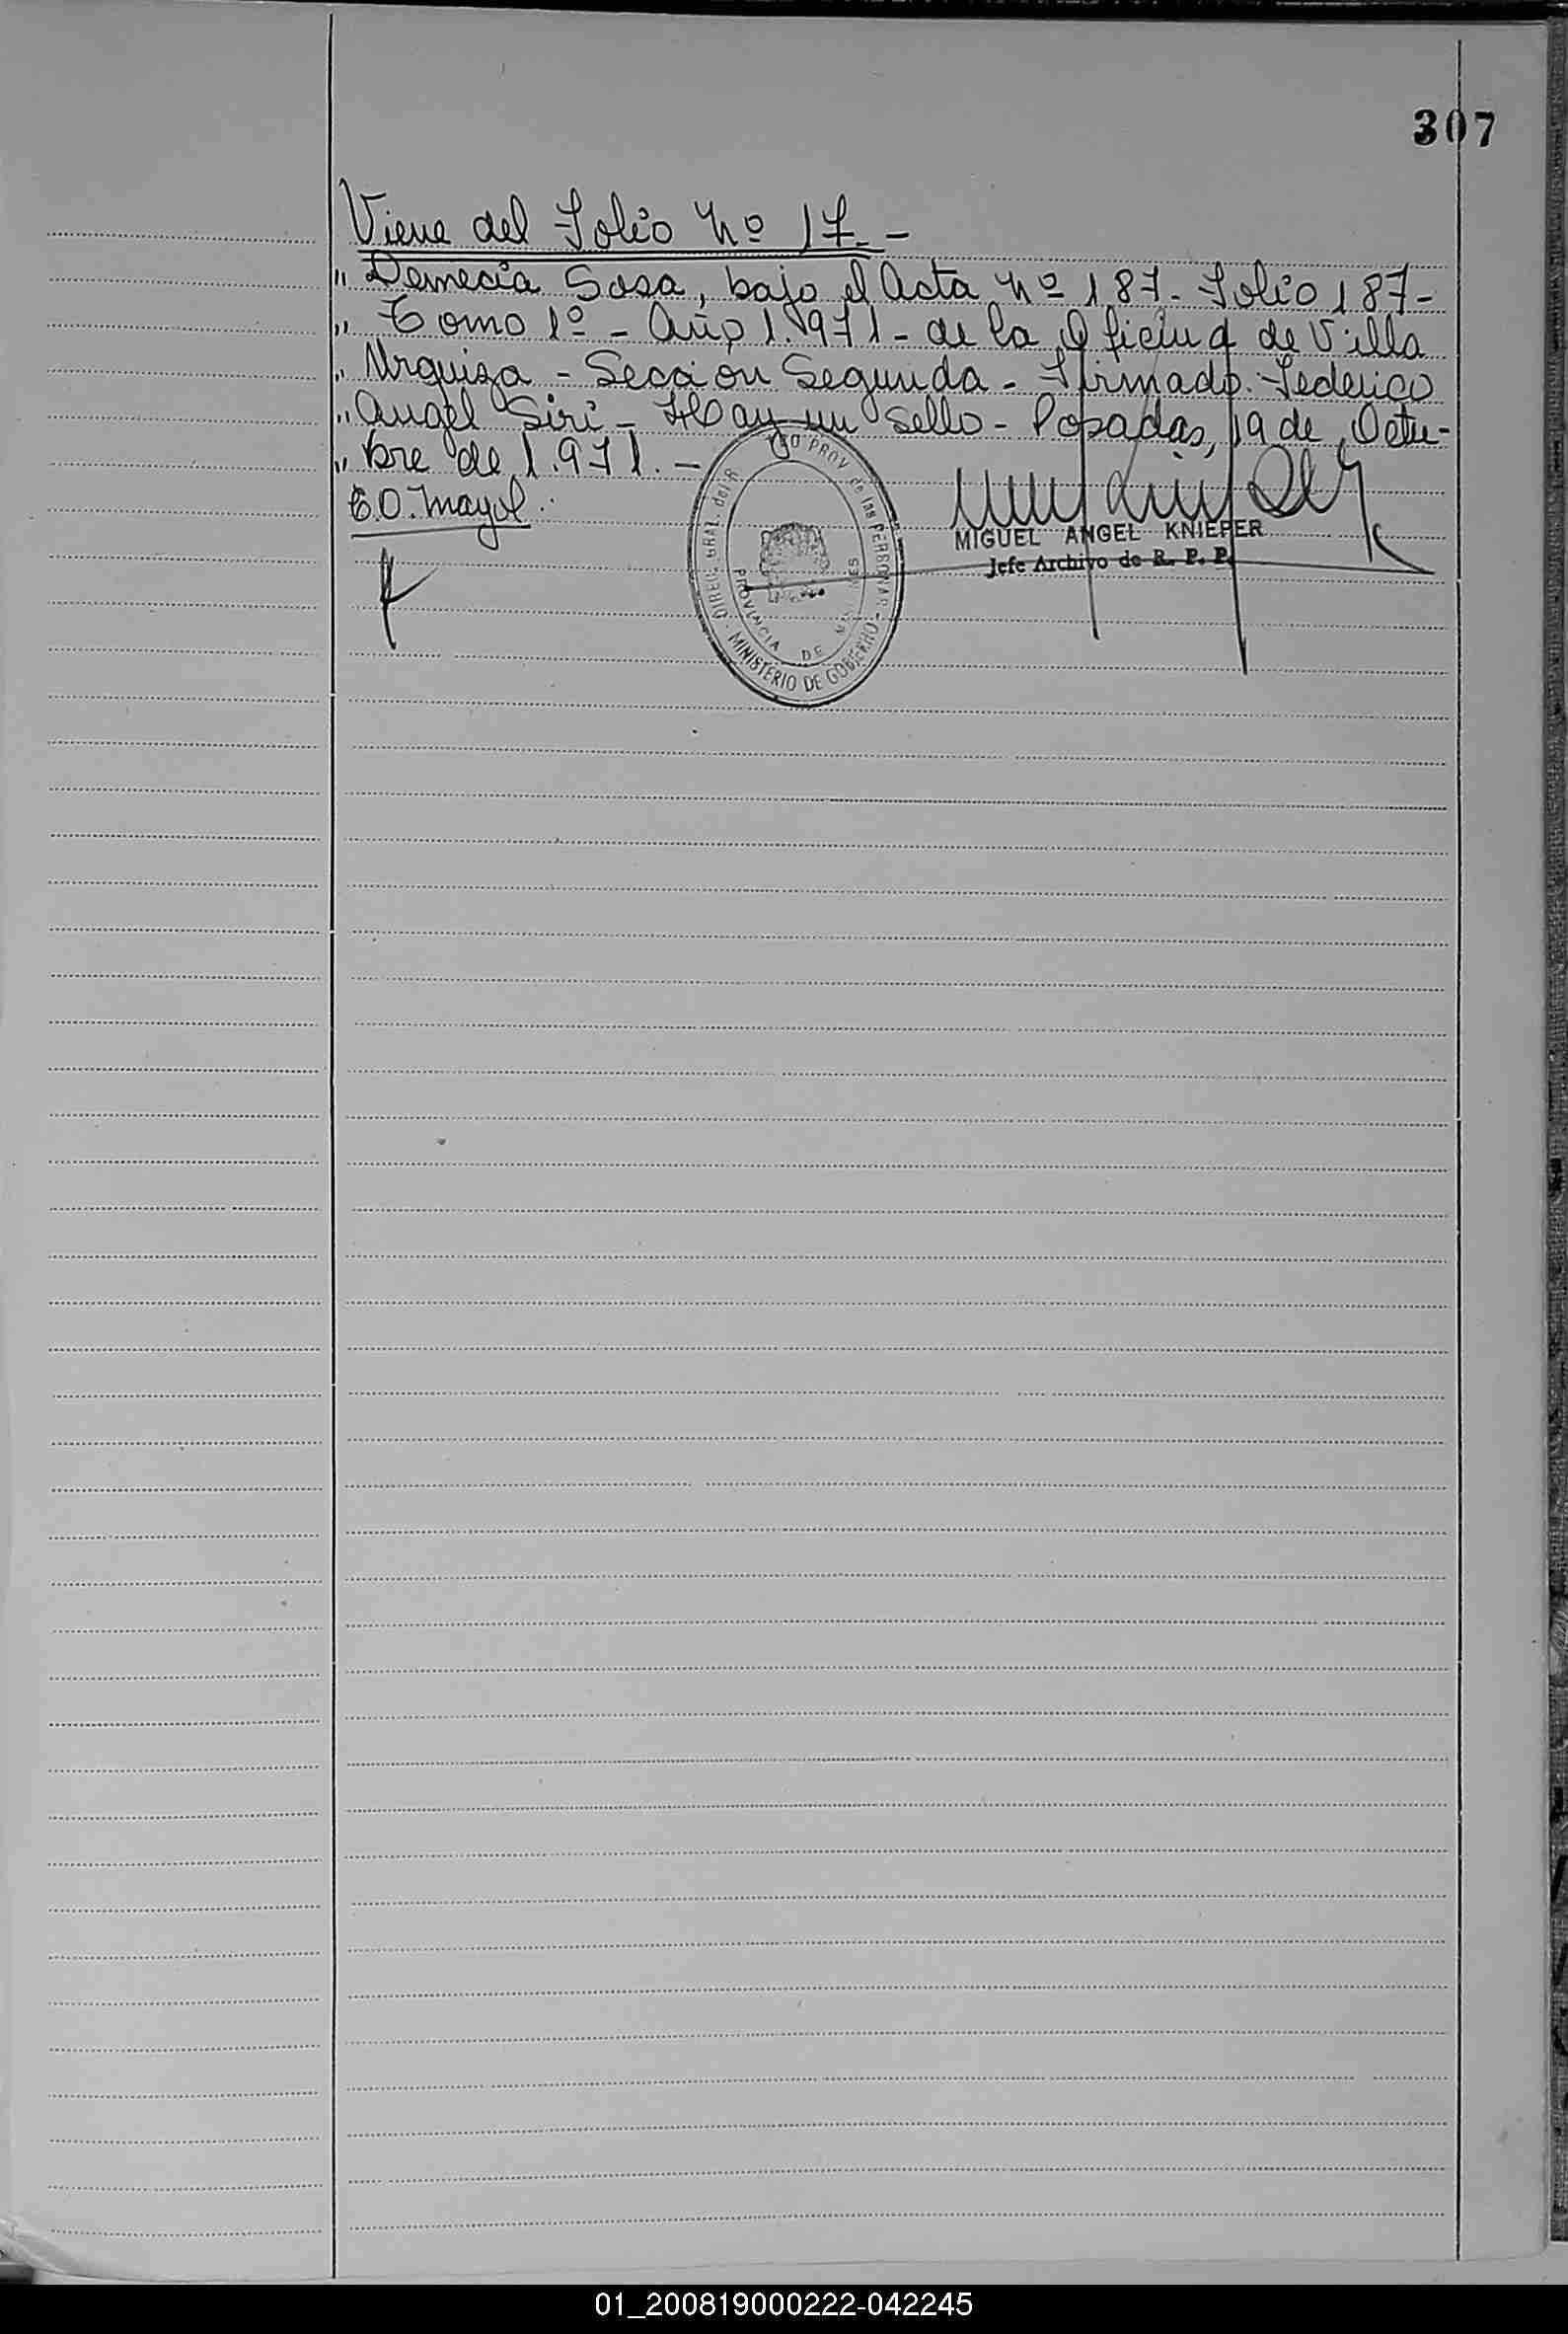 307
Viene del Folio Nº 17.-
" Demecia Sosa, bajo el Acta Nº 187- Folio 187-
" Tomo 1º - Año 1.971- de la Oficina de Villa
" Urquiza - Sección Segunda - Firmado: Federico
" Angel Siri - Hay un sello - Posadas, 19 de Octu-
" bre de 1.971.-
E.O. Mayol.
DIREC. GRAL. del R PROV de las PERSONAS - MINISTERIO DE GOBIERNO -
PROVINCIA DE
MIGUEL ANGEL KNIEPER
Jefe Archivo de R. P. P.
01_200819000222-042245